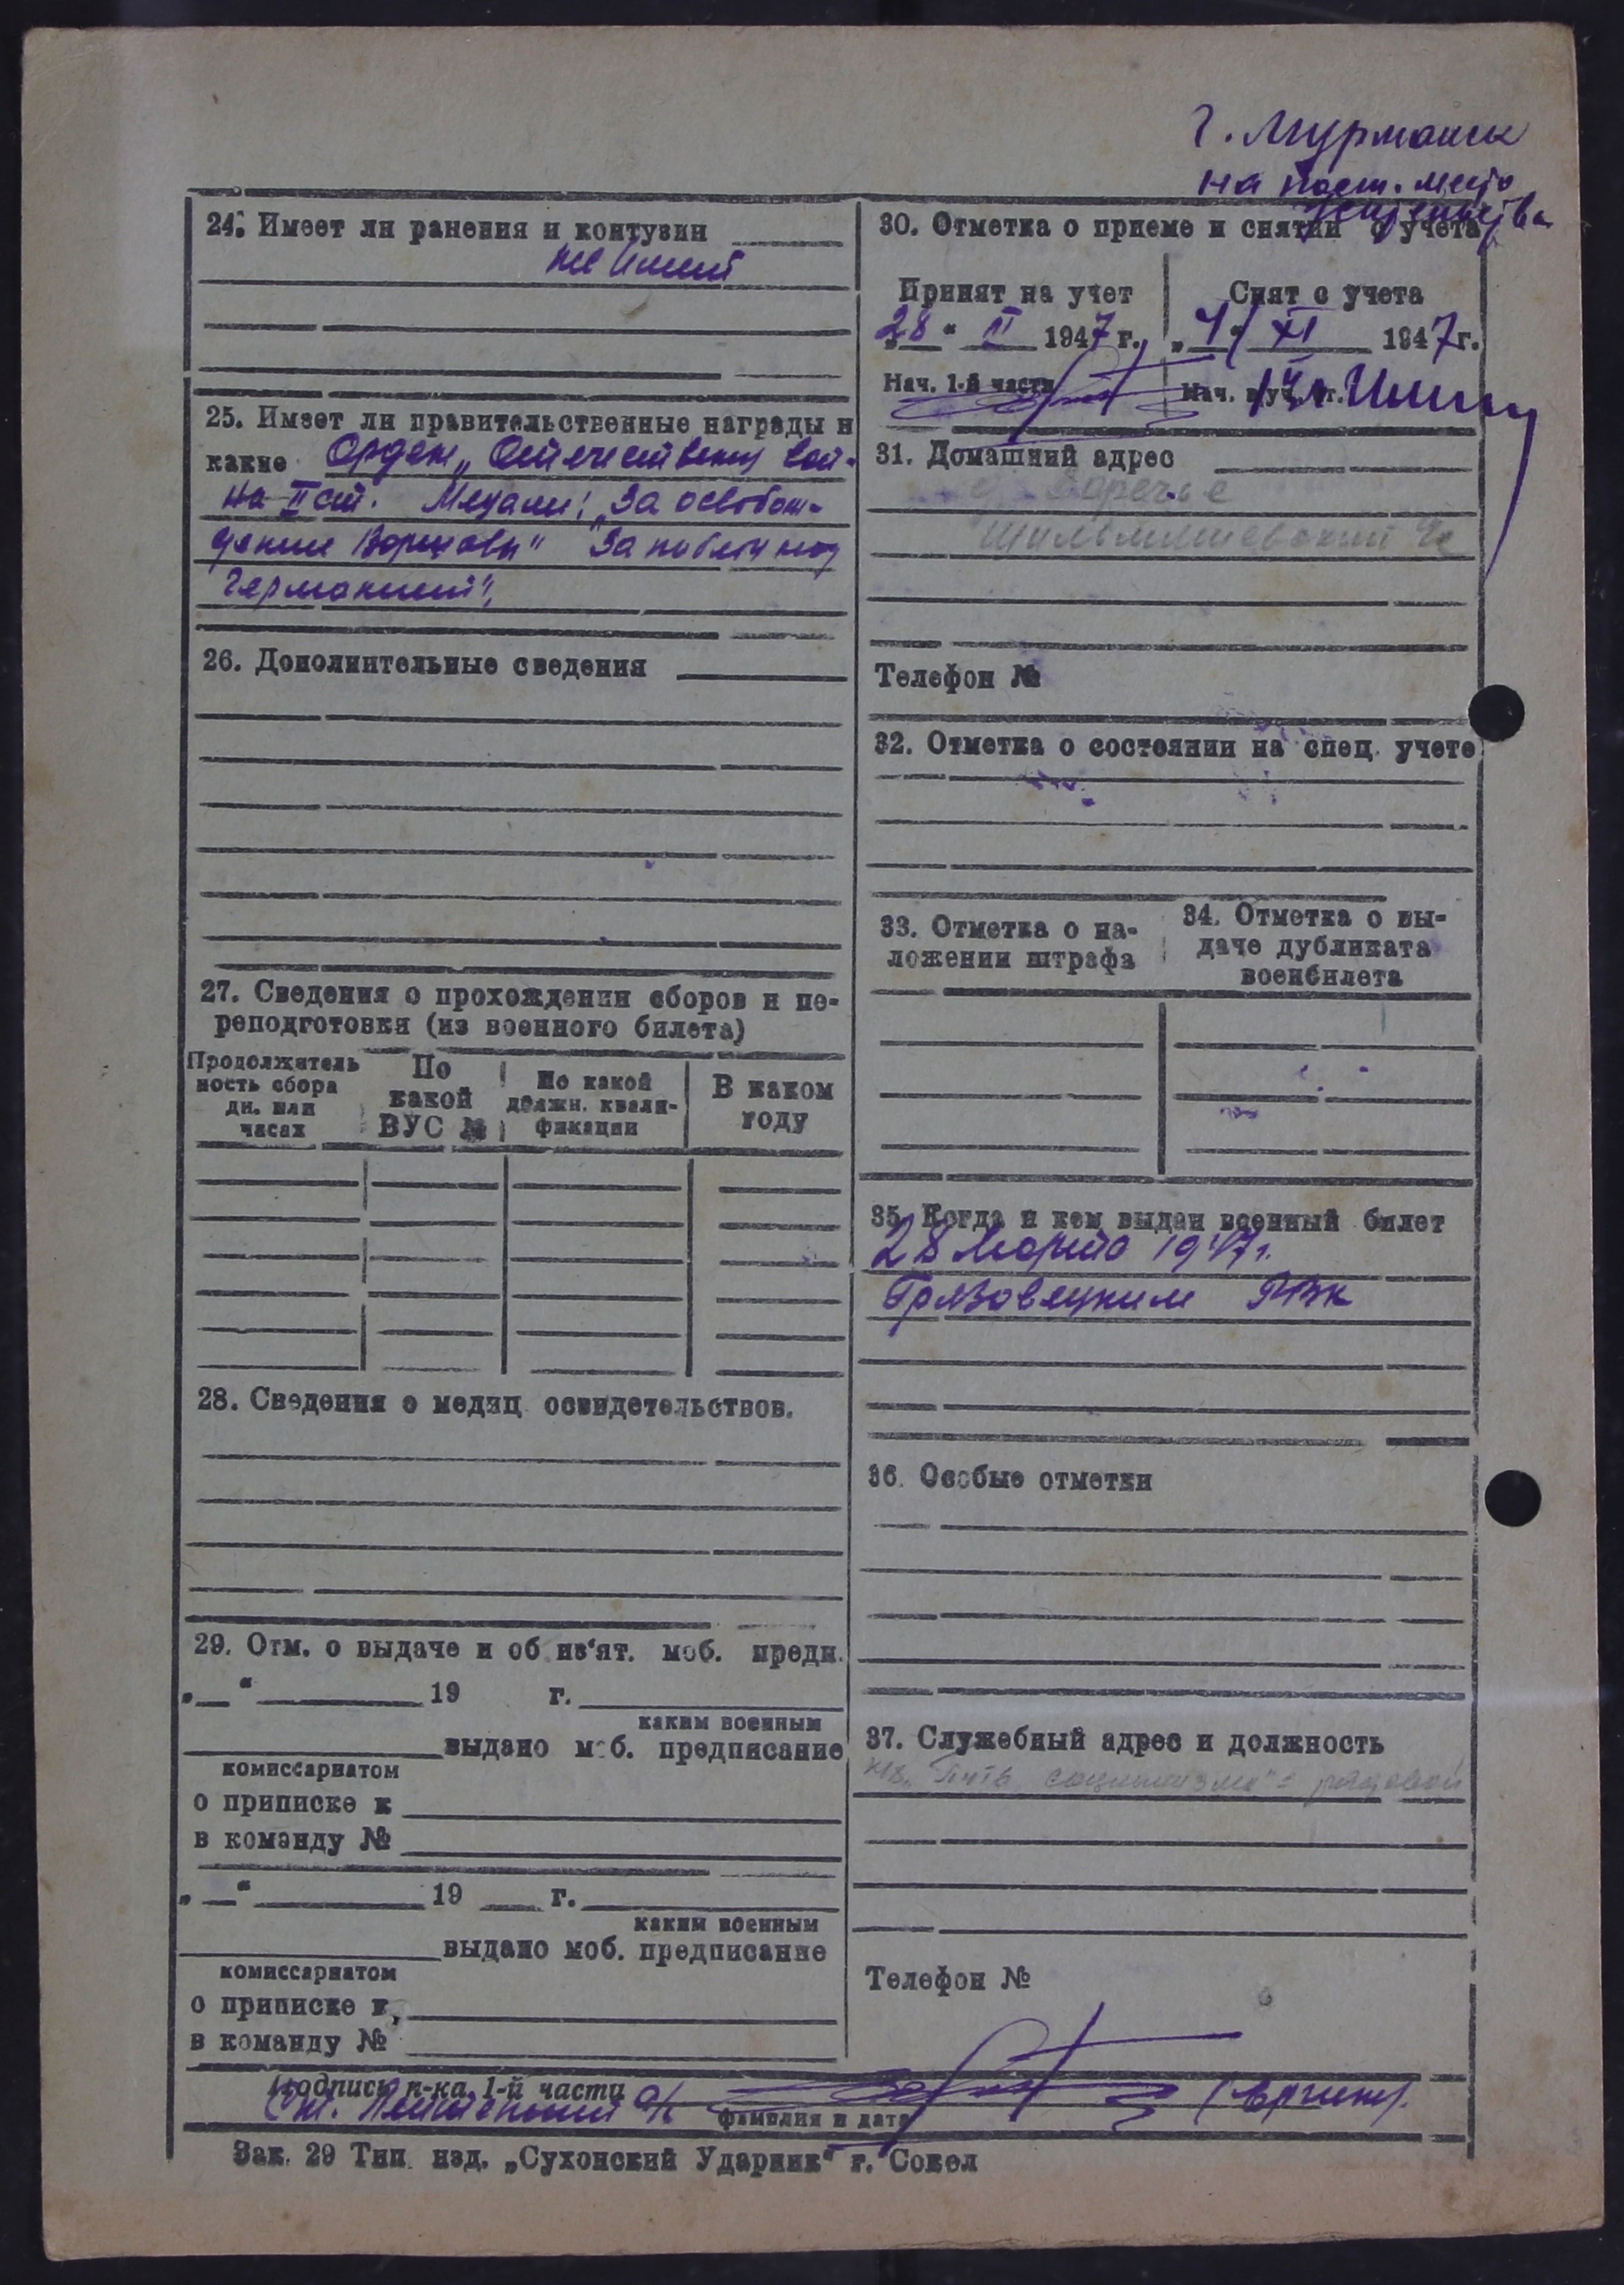 г. Мурманск
на пост. место
жительства
24. Имеет ли ранения и контузии
не имеет
25. Имеет ли правительственные награды и
какие Орден „Отечественной вой-
на II ст. Медали: „За освобож-
дение Варшавы" „За победу над
Германией",
26. Дополнительные сведения
27. Сведения о прохождении сборов и пе-
реподготовки (из военного билета)
Продолжитель
ность сбора
дн. или
часах
По
какой
ВУС №
По какой
должн. квали-
фикации
В каком
году
28. Сведения о медиц освидетельствов.
29. Отм. о выдаче и об из'ят. моб. предп.
„ " 19 г.
каким военным
выдано моб. предписание
комиссариатом
о приписке к
в команду №
„ " 19 г.
каким военным
выдано моб. предписание
комиссариатом
о приписке к
в команду №
30. Отметка о приеме и снятии с учета
Принят на учет
Снят с учета
„28" II 1947 г.
„ XI 1947 г.
Нач. 1-й части
Нач.
31. Домашний адрес
д. Заречье
Телефон №
32. Отметка о состоянии на спец. учете
33. Отметка о на-
ложении штрафа
34. Отметка о вы-
даче дубликата
военбилета
35. Когда и кем выдан военный билет
28 марта 1947 г.
Грязовецким РВК
36. Особые отметки
37. Служебный адрес и должность
„Путь социализма" - рядовой
Телефон №
Подпись н-ка 1-й части
Ст. Лейтенант а/с
фамилия и дата
Зак. 29 Тип. изд. „Сухонский Ударник" г. Сокол